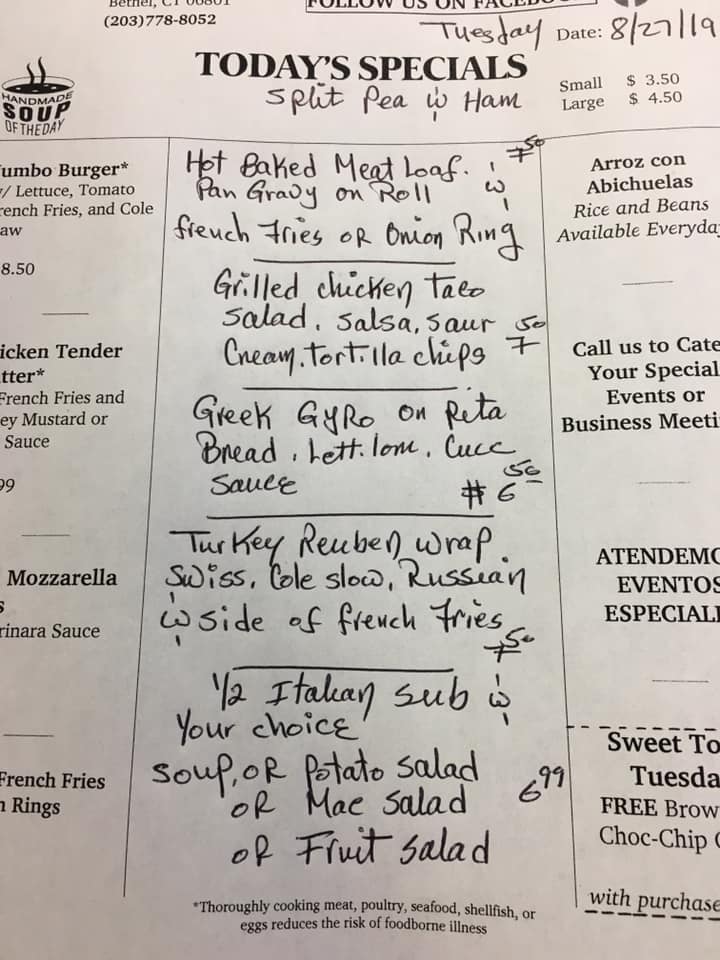 Bethel, CT 06801
(203)778-8052
FOLLOW US ON FACEBO
Tuesday Date: 8/27/19
TODAY'S SPECIALS
Split Pea w Ham
Small $ 3.50
Large $ 4.50
HANDMADE
SOUP
OF THE DAY
umbo Burger*
/ Lettuce, Tomato
rench Fries, and Cole
aw
8.50
icken Tender
tter*
French Fries and
ey Mustard or
Sauce
99
Mozzarella
s
rinara Sauce
French Fries
n Rings
Hot Baked Meat Loaf. 7 50
Pan Gravy on Roll w
french Fries OR Onion Ring
Grilled chicken Taco
Salad, Salsa, Saur
Cream, Tortilla chips 7 50
Greek GYRO on Pita
Bread, Lett. Tom, Cucc
Sauce # 6 50
Turkey Reuben wrap.
Swiss, Cole slow, Russian
w side of french Fries
7 50
1/2 Italian Sub w
Your choice
Soup, OR Potato Salad
OR Mac Salad 6 99
OR Fruit Salad
*Thoroughly cooking meat, poultry, seafood, shellfish, or
eggs reduces the risk of foodborne illness
Arroz con
Abichuelas
Rice and Beans
Available Everyday
Call us to Cate
Your Special
Events or
Business Meeti
ATENDEMO
EVENTOS
ESPECIALE
Sweet To
Tuesda
FREE Brow
Choc-Chip C
with purchase